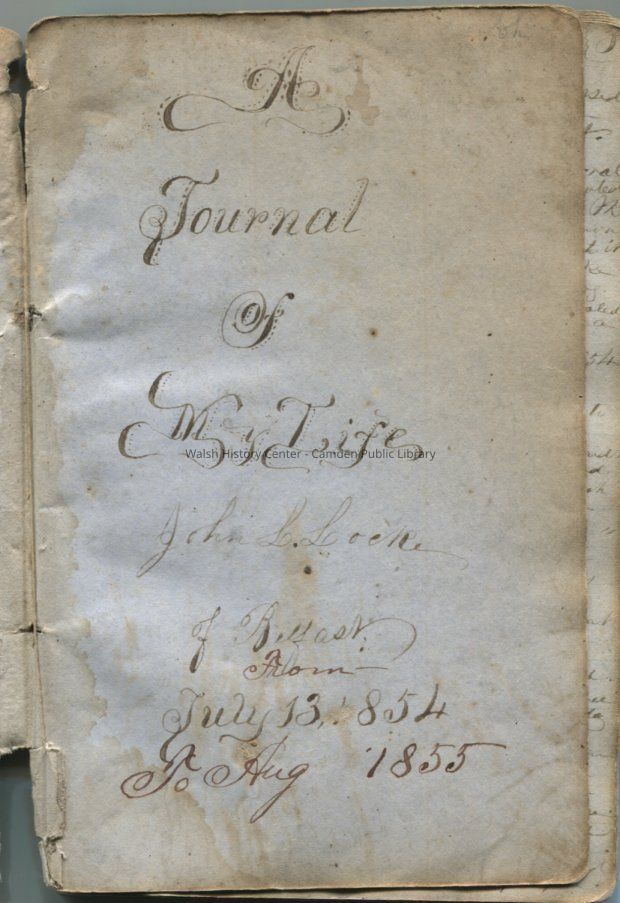 A
Journal
Of
My Life
Walsh History Center - Camden Public Library
John L. Locke
of Belfast.
From
July 13, 1854
To Aug 1855